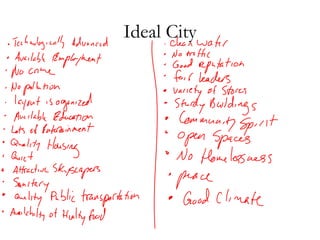 Ideal City
• Technologically Advanced
• Available Employment
• No crime
• No pollution
• layout is organized
• Available Education
• Lots of Entertainment
• Quality Housing
• Quiet
• Attractive Skyscrapers
• Sanitary
• Quality Public transportation
• Availability of Healthy food
• Clean water
• No traffic
• Good reputation
• fair leaders
• Variety of Stores
• Sturdy Buildings
• Community Spirit
• open Spaces
• No Homelessness
• peace
• Good Climate